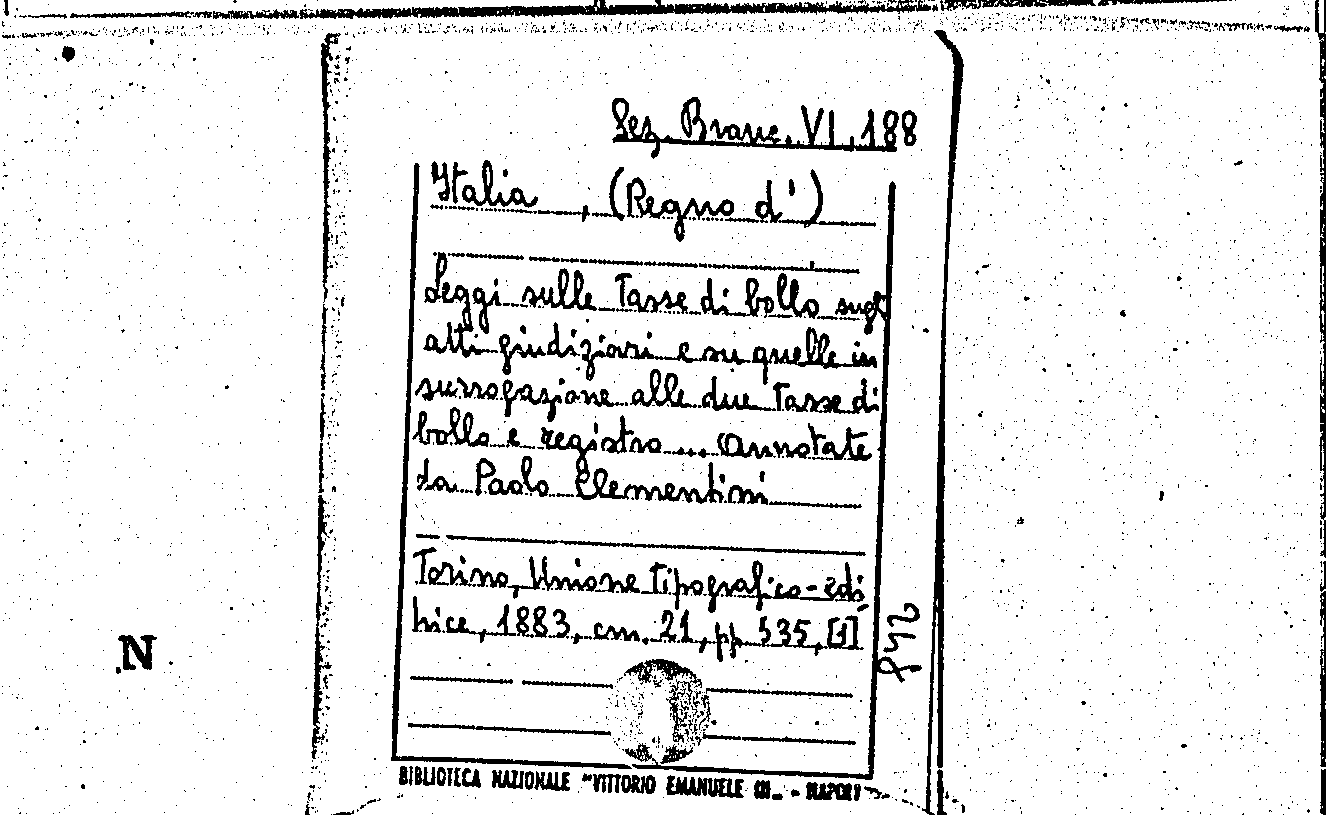 Sez. Branc. VI, 188
Italia , (Regno d')
Leggi sulle Tasse di bollo sugli
atti giudiziari e su quelle in
surrogazione alle due Tasse di
bollo e registro ... annotate
da Paolo Clementini
Torino, Unione Tipografico-edi
trice, 1883, cm. 21, pp 535, [1]
N
BIBLIOTECA NAZIONALE "VITTORIO EMANUELE III" - NAPOLI